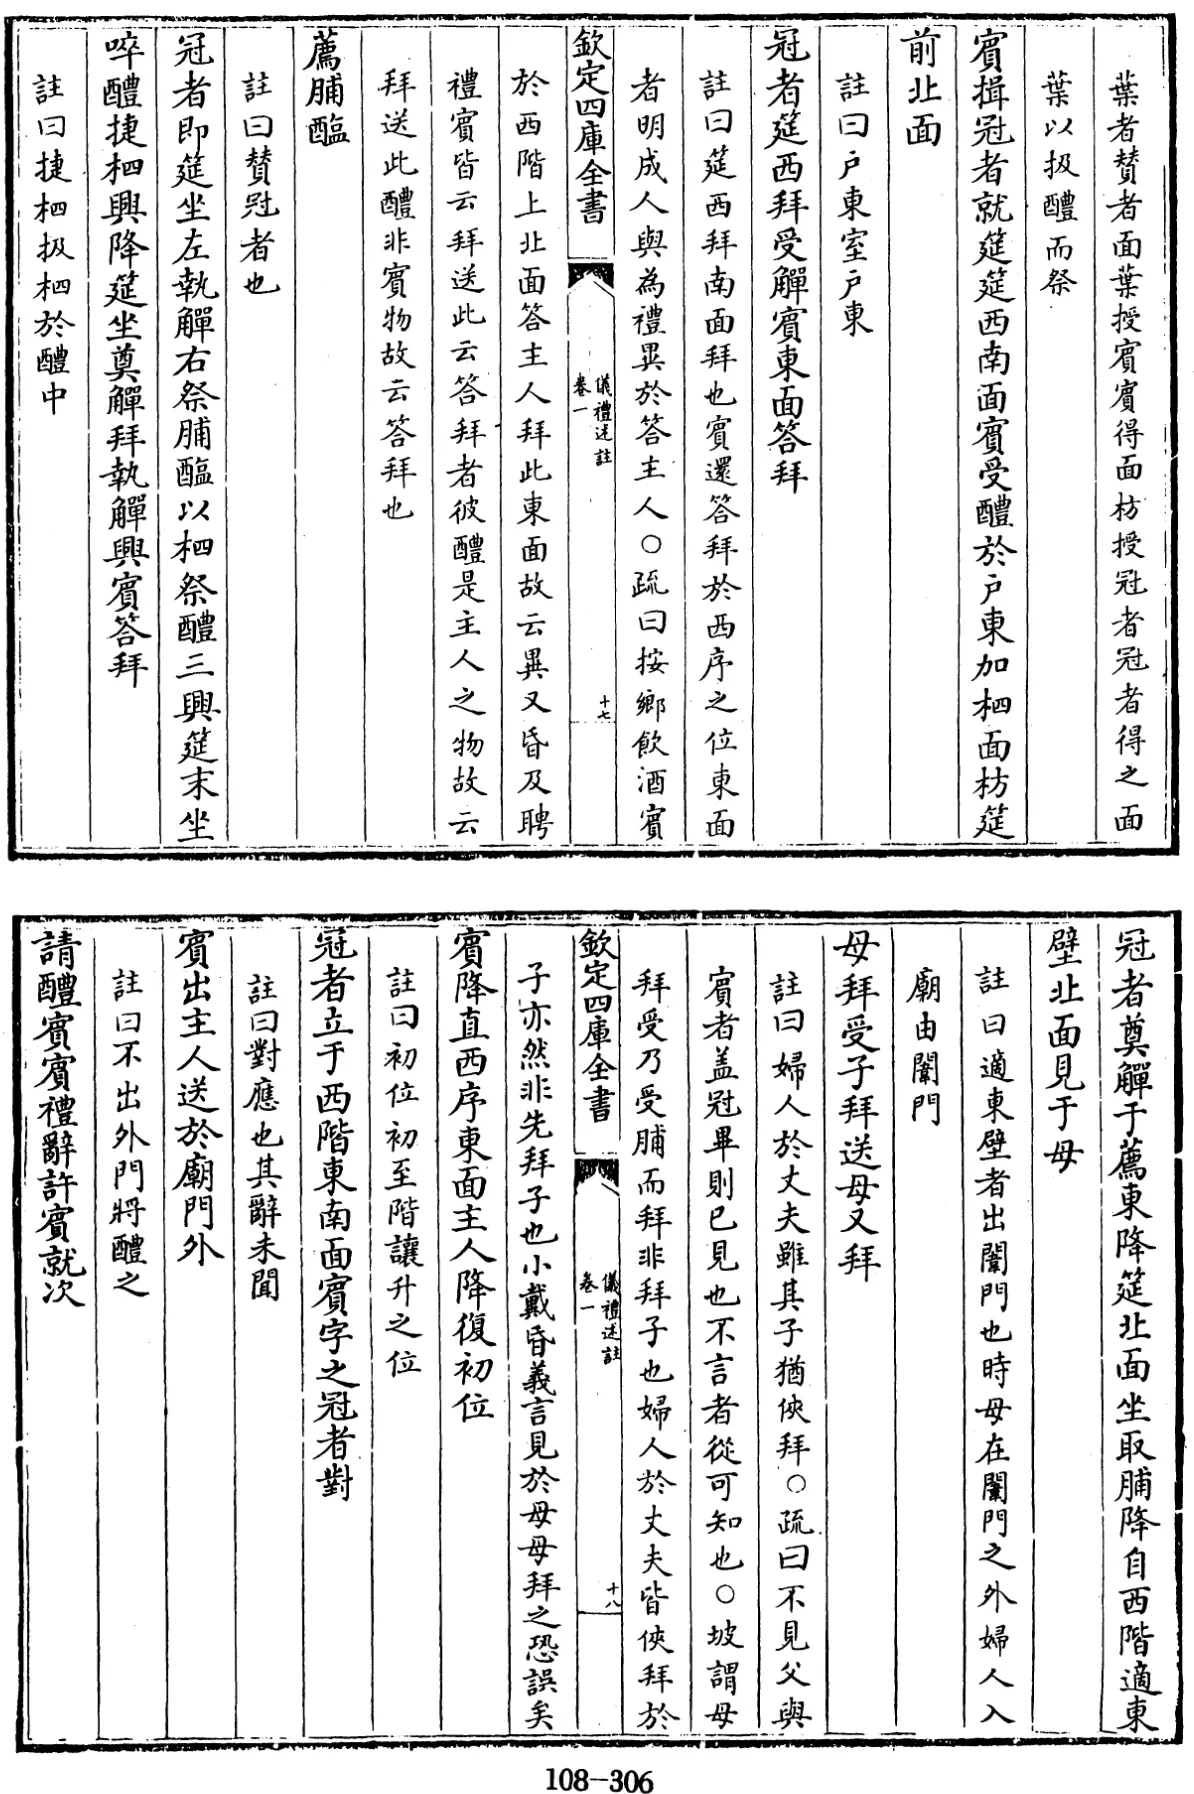 葉者賛者面葉授賓賓得面枋授冠者冠者得之面
葉以扱醴而祭
賓揖冠者就筵筵西南面賓受醴於户東加柶面枋筵
前北面
註曰户東室户東
冠者筵西拜受觶賓東面答拜
註曰筵西拜南面拜也賓還答拜於西序之位東面
者明成人與為禮異於答主人○疏曰按鄉飲酒賓
欽定四庫全書
儀禮述註
卷一
十七
於西階上北面答主人拜此東面故云異又昏及聘
禮賓皆云拜送此云答拜者彼醴是主人之物故云
拜送此醴非賓物故云答拜也
薦脯醢
註曰賛冠者也
冠者即筵坐左執觶右祭脯醢以柶祭醴三興筵末坐
啐醴捷柶興降筵坐奠觶拜執觶興賓答拜
註曰捷柶扱柶於醴中
冠者奠觶于薦東降筵北面坐取脯降自西階適東
壁北面見于母
註曰適東壁者出闈門也時母在闈門之外婦人入
廟由闈門
母拜受子拜送母又拜
註曰婦人於丈夫雖其子猶俠拜○疏曰不見父與
賓者盖冠畢則已見也不言者從可知也○坡謂母
拜受乃受脯而拜非拜子也婦人於丈夫皆俠拜於
欽定四庫全書
儀禮述註
卷一
十八
子亦然非先拜子也小戴昏義言見於母母拜之恐誤矣
賓降直西序東面主人降復初位
註曰初位初至階讓升之位
冠者立于西階東南面賓字之冠者對
註曰對應也其辭未聞
賓出主人送於廟門外
註曰不出外門將醴之
請醴賓賓禮辭許賓就次
108-306